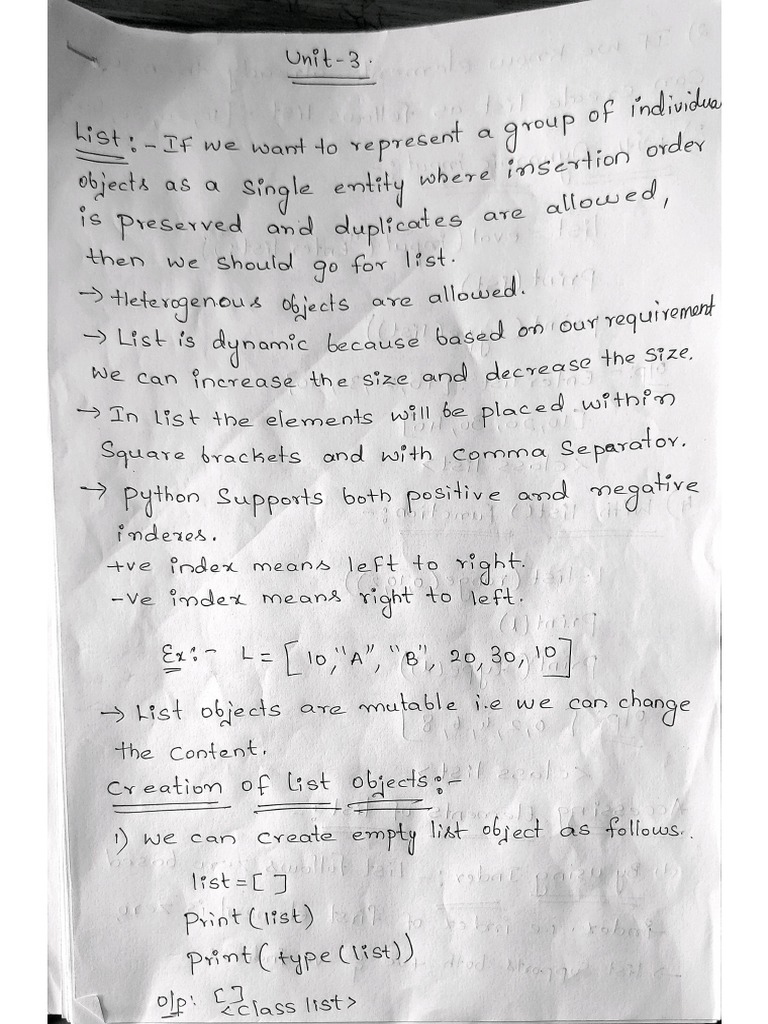 Unit-3.
List:- If we want to represent a group of individua
objects as a single entity where insertion order
is preserved and duplicates are allowed,
then we should go for list.
→ Heterogenous objects are allowed.
→ List is dynamic because based on our requirement
we can increase the size and decrease the size.
→ In list the elements will be placed within
Square brackets and with comma separator.
→ python supports both positive and negative
indexes.
+ve index means left to right.
-ve index means right to left.
Ex:- L = [10, "A", "B", 20, 30, 10]
→ List objects are mutable i.e we can change
the content.
Creation of List objects:-
1) we can create empty list object as follows.
list = [ ]
print(list)
print(type(list))
o/p: [ ]
<class list>